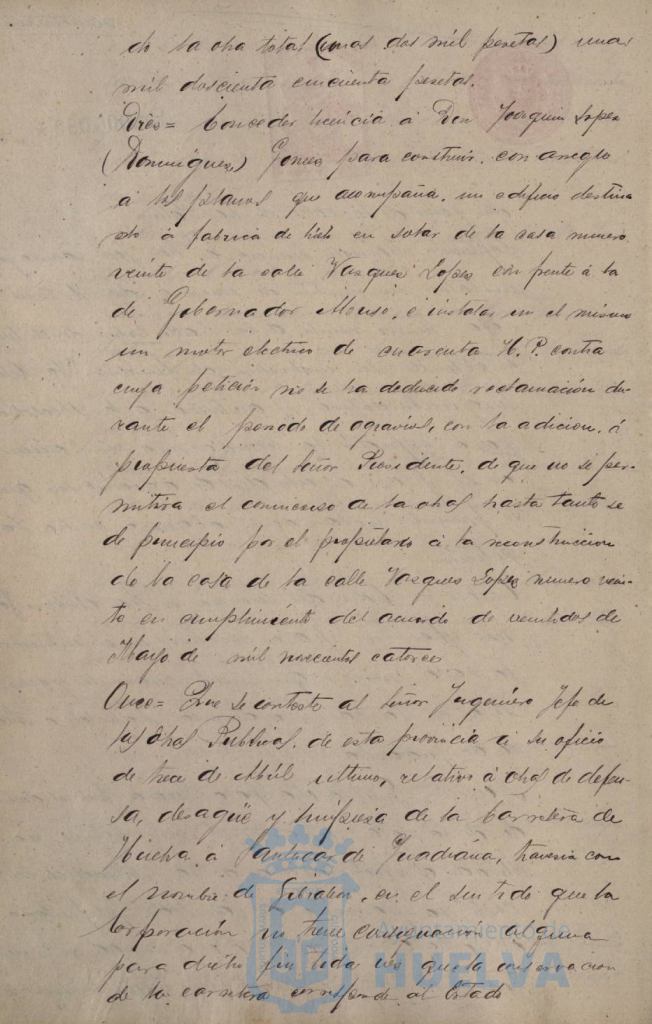 do la obra total (unas dos mil pesetas) unas
mil doscienta cincuenta pesetas.
Diès= Conceder licencia á Don Joaquin Lopez
(Dominguez) Gomez para construir, con arreglo
á los planos que acompaña, un edificio destina
do á fabrica de hielo en solar de la casa numero
veinte de la calle Vazquez Lopez con frente á la
de Gobernador Alonso, é instalar en el mismo
un motor electrico de cuarenta H. P. contra
cuya peticion no se ha deducido reclamación du-
rante el periodo de agravios, con la adicion, á
propuesta del Señor Presidente, de que no se per-
mitira el comienzo de la obra hasta tanto se
de principio por el propietario á la reconstruccion
de la casa de la calle Vazquez Lopez numero vein-
te en cumplimiento del acuerdo de veintidos de
Mayo de mil novecientos catorce
Once= Que se conteste al Señor Ingeniero Jefe de
las Obras Publicas, de esta provincia á su oficio
de trece de Abril ultimo, relativo á obras de defen-
sa, desagüe y limpieza de la Carretera de
Huelva á Sanlucar de Guadiana, travesia con
el nombre de Gibraleon, en el sentido que la
Corporación no tiene consignación alguna
para dicho fin toda vés que la conservacion
de la carretera corresponde al Estado
Ayuntamiento de
HUELVA